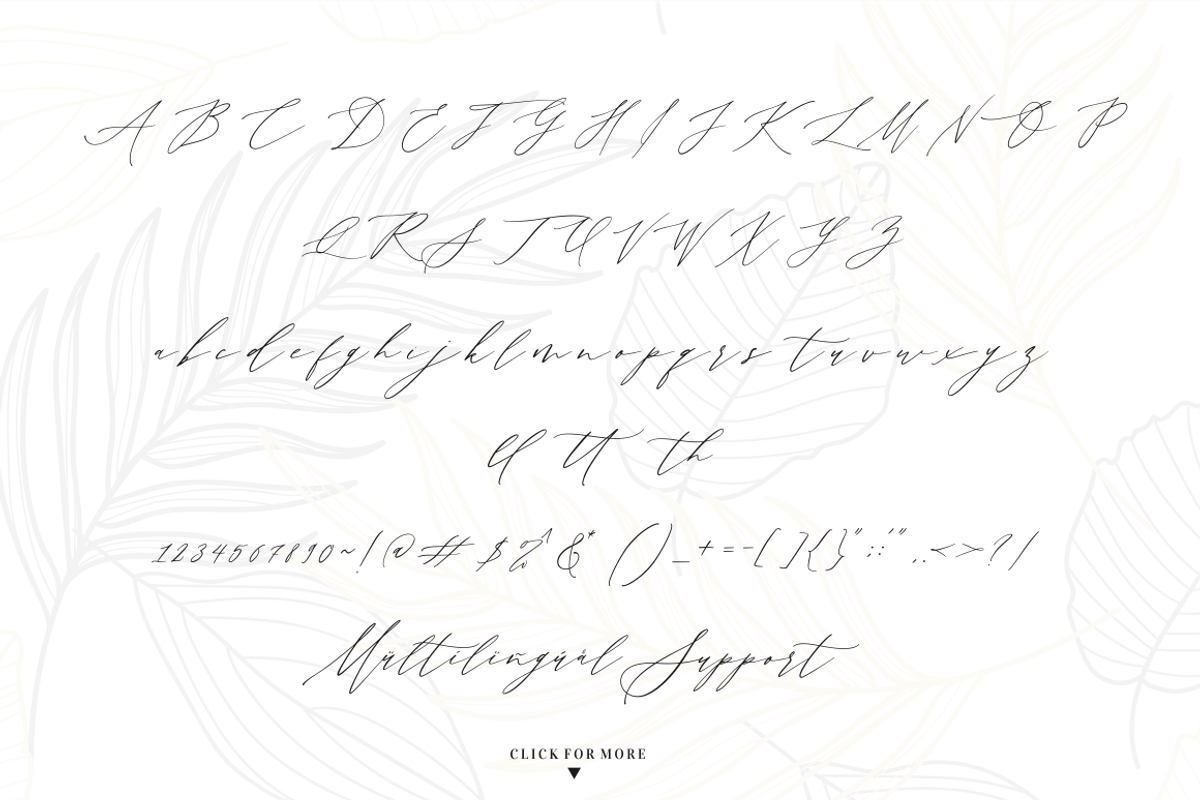 A B C D E F G H I J K L M N O P
Q R S T U V W X Y Z
a b c d e f g h i j k l m n o p q r s t u v w x y z
ll tt th
1 2 3 4 5 6 7 8 9 0 ~ ! @ # $ % ^ & * ( ) _ + = - [ ] { } " : ; ' " , . < > ? /
Mültilïñgúàl Support
CLICK FOR MORE